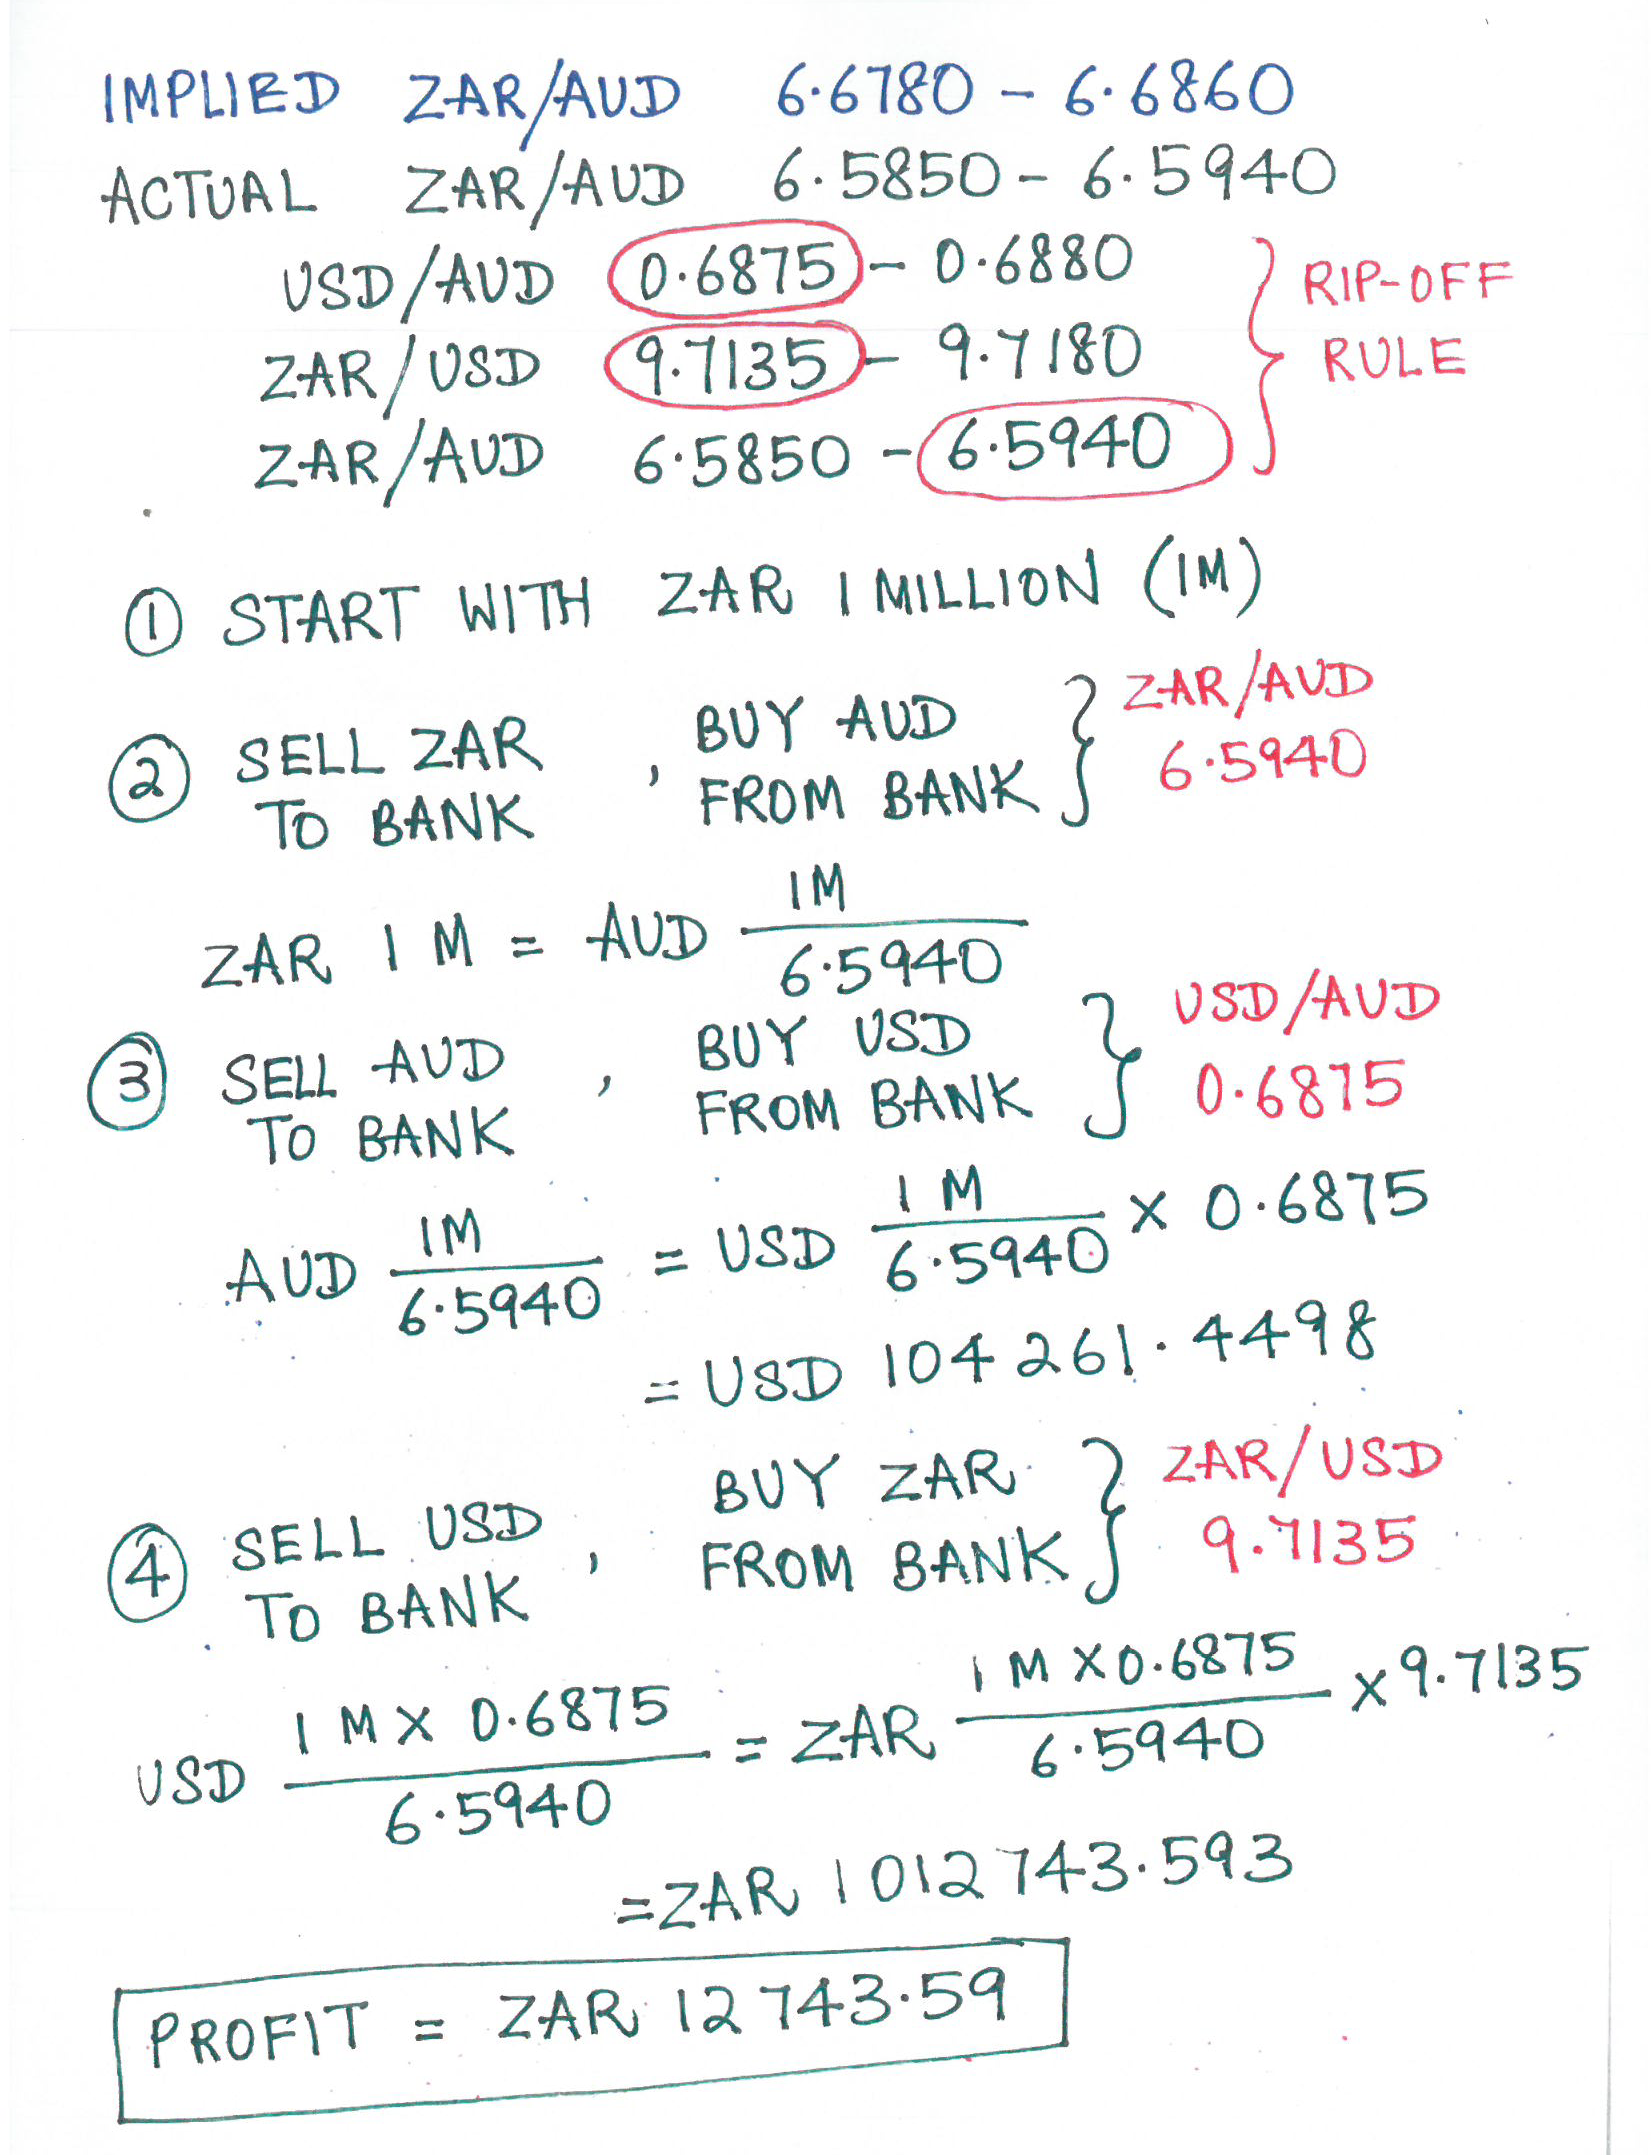 IMPLIED ZAR/AUD 6.6780 – 6.6860
ACTUAL ZAR/AUD 6.5850 – 6.5940
USD/AUD 0.6875 – 0.6880
ZAR/USD 9.7135 – 9.7180
ZAR/AUD 6.5850 – 6.5940
} RIP-OFF
RULE
① START WITH ZAR 1 MILLION (1M)
② SELL ZAR TO BANK , BUY AUD FROM BANK } ZAR/AUD 6.5940
ZAR 1 M = AUD 1M / 6.5940
③ SELL AUD TO BANK , BUY USD FROM BANK } USD/AUD 0.6875
AUD 1M / 6.5940 = USD 1 M / 6.5940 × 0.6875
= USD 104 261.4498
④ SELL USD TO BANK , BUY ZAR FROM BANK } ZAR/USD 9.7135
USD 1 M × 0.6875 / 6.5940 = ZAR 1 M × 0.6875 / 6.5940 × 9.7135
= ZAR 1 012 743.593
PROFIT = ZAR 12 743.59